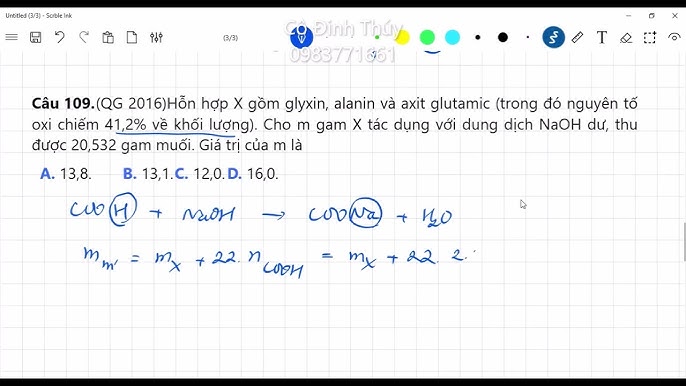 Untitled (3/3) - Scrble Ink
(3/3)
Cô Đinh Thúy
0983771661
Câu 109.(QG 2016)Hỗn hợp X gồm glyxin, alanin và axit glutamic (trong đó nguyên tố
oxi chiếm 41,2% về khối lượng). Cho m gam X tác dụng với dung dịch NaOH dư, thu
được 20,532 gam muối. Giá trị của m là
A. 13,8. B. 13,1. C. 12,0. D. 16,0.
COOH + NaOH → COONa + H₂O
m m' = m X + 22. n COOH = m X + 22. 2.